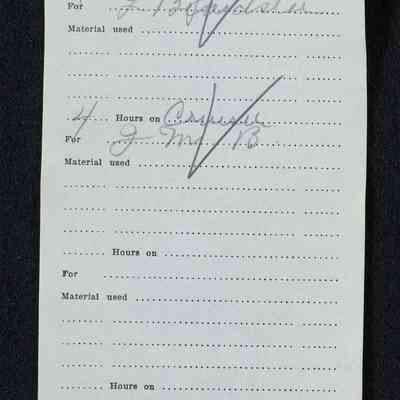 For
Material used
4 Hours on
For J M B
Material used
Hours on
For
Material used
Hours on